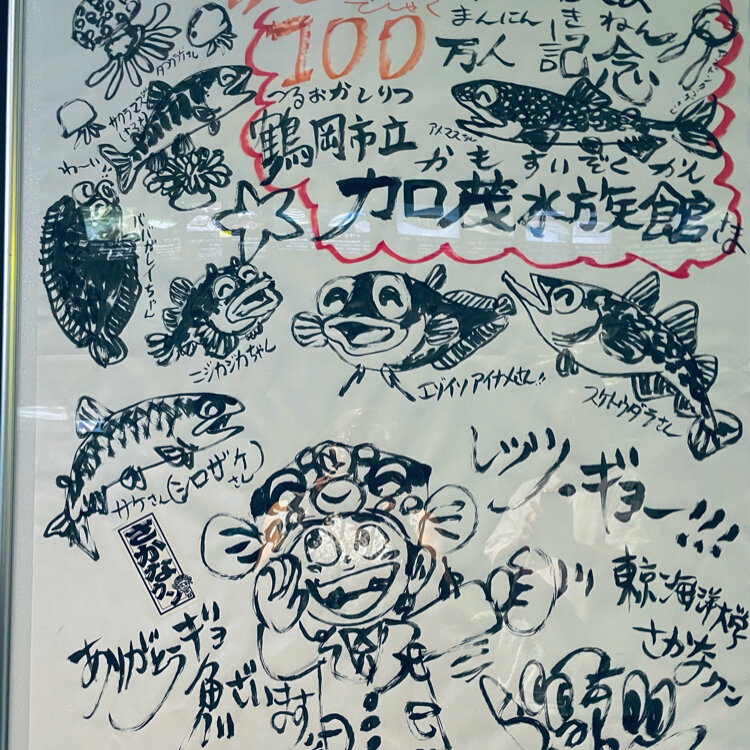 まんにん
100万人 記念
つるおかしりつ
鶴岡市立
かもすいぞくかん
加茂水族館
サクラマス
アメマスちゃん
わーい
ババガレイちゃん
ニジカジカちゃん
エゾイソアイナメさん!!
スケトウダラさん
サケさん(シロザケさん)
レッツ・ギョー!!!
さかなクン
東京海洋大学
さかなクン
ありがとうギョ
魚ざいます